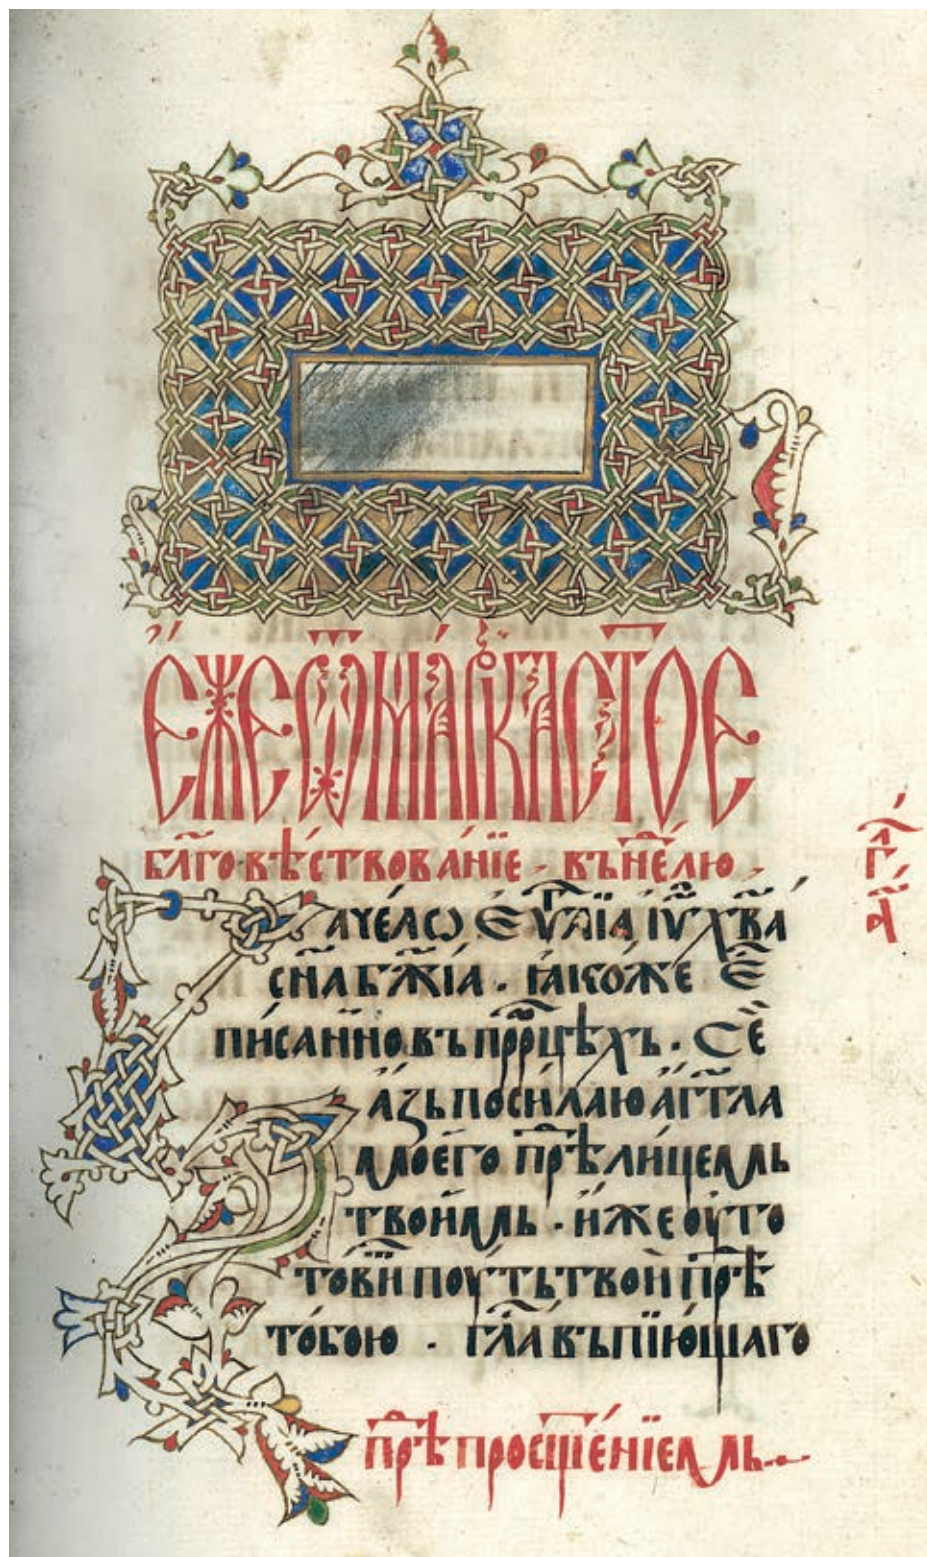 Є҆́жеѿма́ркастⷪ҇ое
бл҃говѣствова́нїе . вънⷣе́лю .
Зауе́ло єѵⷢ҇лїа і҆ѵ҃ хв҃а
сн҃а бж҃їа . ꙗ҆коже є҆ⷭ҇
пи́саннно въ прⷪ҇ро́цѣхъ . Се҆
а҆́зь посила́ю а҆́гг҃ла
моего̀ прⷣѣ ли́цемь
твои҆мь . и҆́же оуго
тови́ поу́ть твои прⷣѣ
тобою . гла́ⷭ въпїю́щаго
прⷣѣ просщⷣе́нїемь